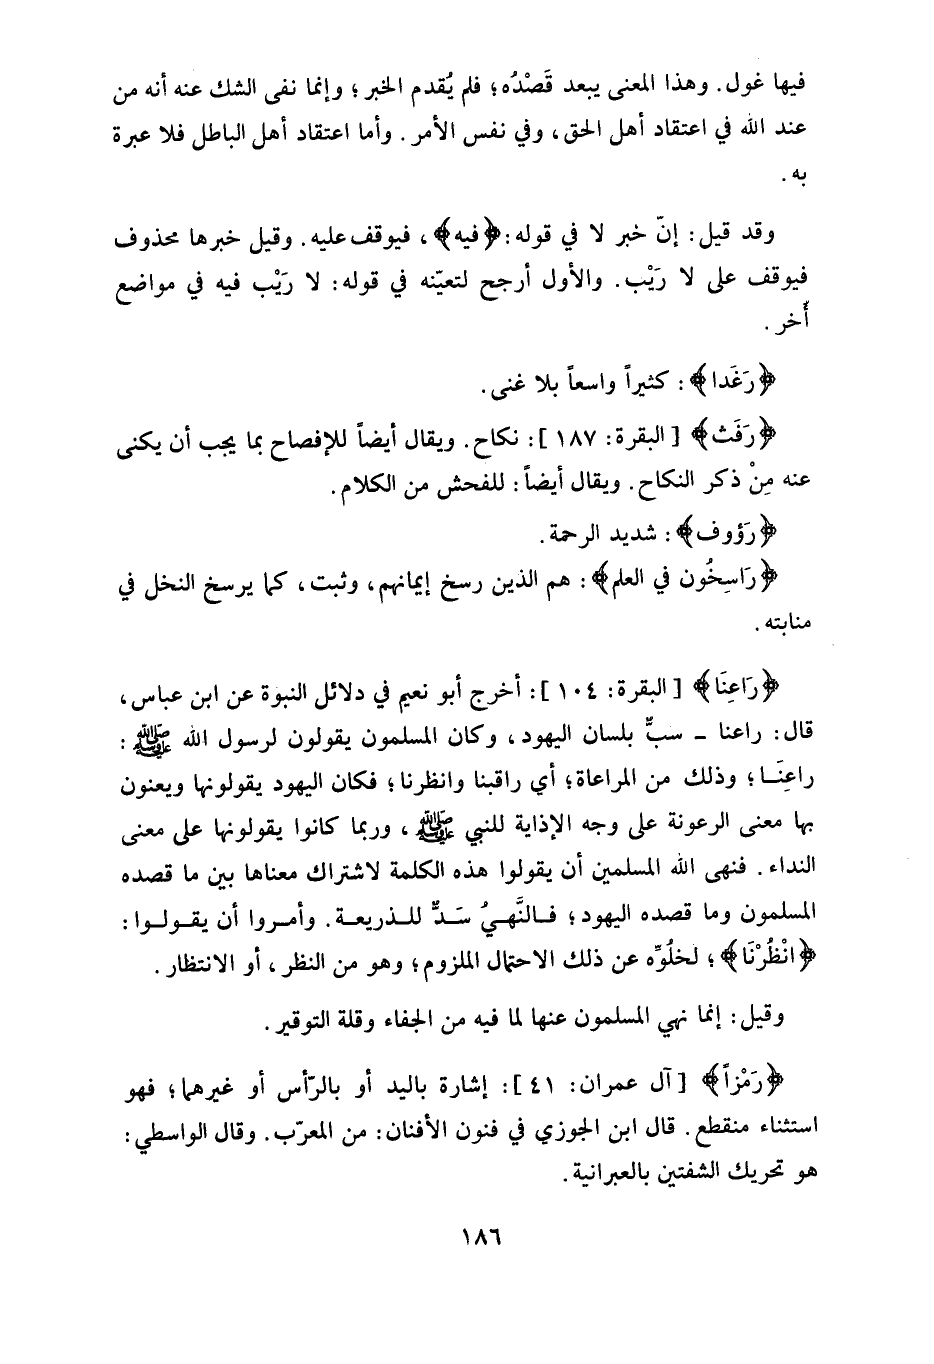 فيها غول. وهذا المعنى يبعد قَصْدُه؛ فلم يُقدم الخبر؛ وإنما نفى الشك عنه أنه من
عند الله في اعتقاد أهل الحق، وفي نفس الأمر. وأما اعتقاد أهل الباطل فلا عبرة
به.
وقد قيل: إنّ خبر لا في قوله: ﴿فيه﴾، فيوقف عليه. وقيل خبرها محذوف
فيوقف على لا رَيْب. والأول أرجح لتعيّنه في قوله: لا رَيْب فيه في مواضع
أُخر.
﴿رَغَدا﴾: كثيراً واسعاً بلا غنى.
﴿رَفَث﴾ [البقرة: ١٨٧]: نكاح. ويقال أيضاً للإفصاح بما يجب أن يكنى
عنه مِنْ ذكر النكاح. ويقال أيضاً: للفحش من الكلام.
﴿رَؤوف﴾: شديد الرحمة.
﴿رَاسِخُون في العلم﴾: هم الذين رسخ إيمانهم، وثبت، كما يرسخ النخل في
منابته.
﴿رَاعِنَا﴾ [البقرة: ١٠٤]: أخرج أبو نعيم في دلائل النبوة عن ابن عباس،
قال: راعنا - سبٌّ بلسان اليهود، وكان المسلمون يقولون لرسول الله ﷺ:
راعِنَــا؛ وذلك من المراعاة؛ أي راقبنا وانظرنا؛ فكان اليهود يقولونها ويعنون
بها معنى الرعونة على وجه الإذاية للنبي ﷺ، وربما كانوا يقولونها على معنى
النداء. فنهى الله المسلمين أن يقولوا هذه الكلمة لاشتراك معناها بين ما قصده
المسلمون وما قصده اليهود؛ فــالنَّهيُ سَــدٌّ للــذريعــة. وأمــروا أن يقــولــوا:
﴿انْظُرْنَا﴾؛ لخلُوِّه عن ذلك الاحتمال الملزوم؛ وهو من النظر، أو الانتظار.
وقيل: إنما نهي المسلمون عنها لما فيه من الجفاء وقلة التوقير.
﴿رَمْزاً﴾ [آل عمران: ٤١]: إشارة باليد أو بالرّأس أو غيرهما؛ فهو
استثناء منقطع. قال ابن الجوزي في فنون الأفنان: من المعرّب. وقال الواسطي:
هو تحريك الشفتين بالعبرانية.
١٨٦